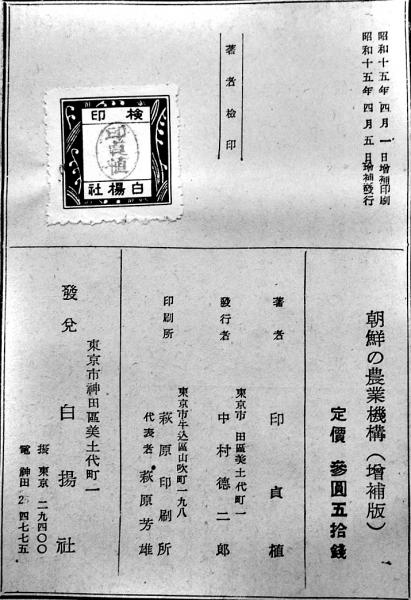 昭和十五年四月一日增補印刷
昭和十五年四月五日增補發行
著者檢印
検印
印貞植
白楊社
朝鮮の農業機構(增補版)
定價 參圓五拾錢
著者 印貞植
東京市 田區美土代町一
發行者 中村德二郎
東京市牛込區山吹町一九八
印刷所 萩原印刷所
代表者 萩原芳雄
東京市神田區美土代町一
發兌 白揚社
振 東京 二九四〇〇
電 神田25四七七五